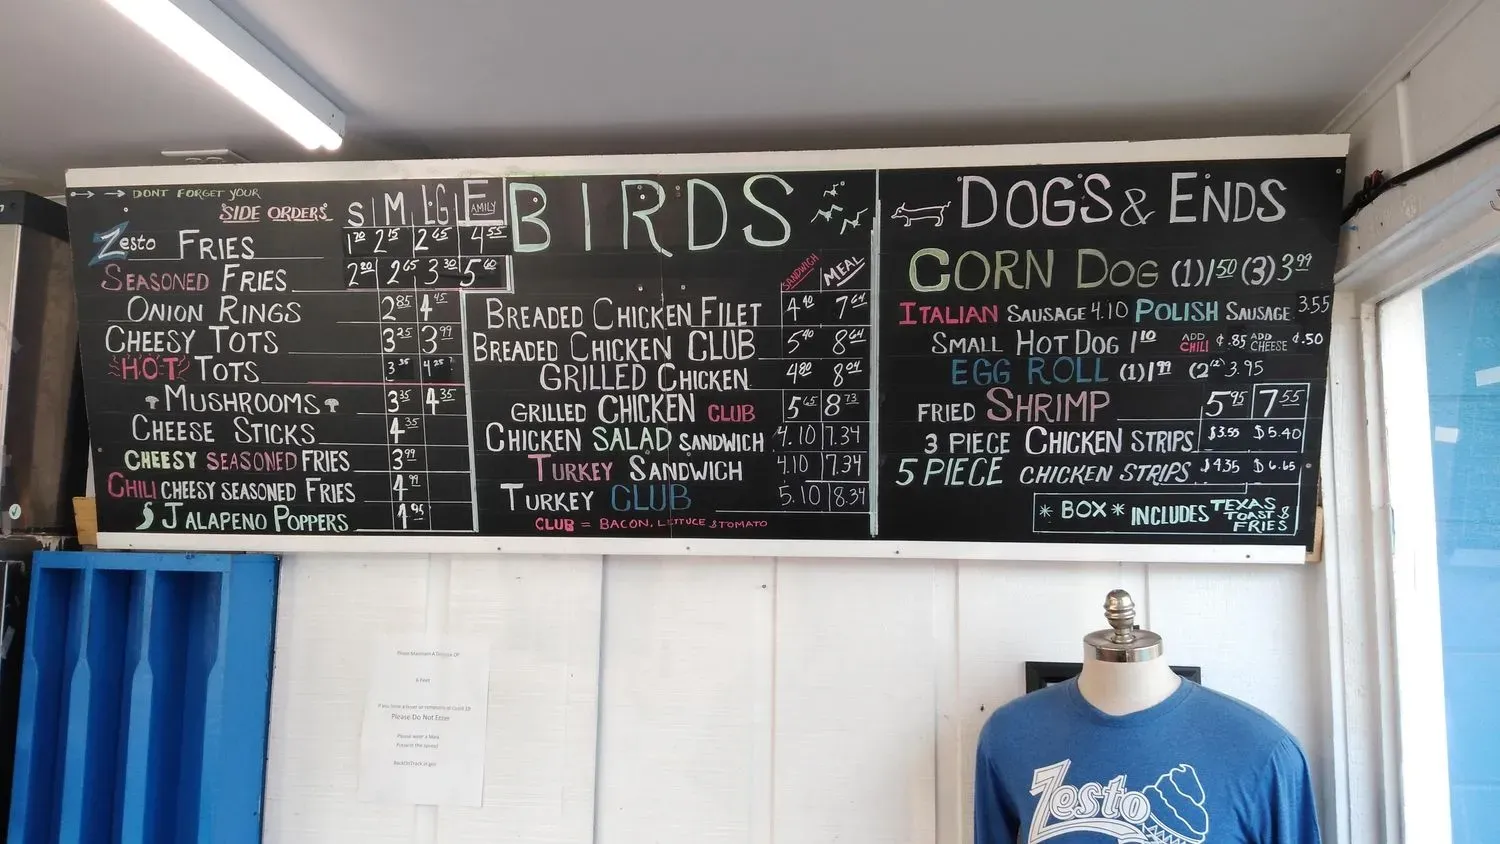 DONT FORGET YOUR
SIDE ORDERS S M LG FAMILY
Zesto FRIES 1 70 2 15 2 65 4 55
SEASONED FRIES 2 20 2 65 3 30 5 60
ONION RINGS 2 85 4 45
CHEESY TOTS 3 35 3 99
HOT TOTS 3 35 4 25
MUSHROOMS 3 35 4 35
CHEESE STICKS 4 35
CHEESY SEASONED FRIES 3 99
CHILI CHEESY SEASONED FRIES 4 99
JALAPENO POPPERS 4 95
BIRDS
SANDWICH MEAL
BREADED CHICKEN FILET 4 40 7 64
BREADED CHICKEN CLUB 5 40 8 64
GRILLED CHICKEN 4 80 8 04
GRILLED CHICKEN CLUB 5 65 8 73
CHICKEN SALAD SANDWICH 4.10 7.34
TURKEY SANDWICH 4.10 7.34
TURKEY CLUB 5.10 8.34
CLUB = BACON, LETTUCE & TOMATO
DOGS & ENDS
CORN DOG (1) 1 50 (3) 3 99
ITALIAN SAUSAGE 4.10 POLISH SAUSAGE 3.55
SMALL HOT DOG 1 10 ADD CHILI ¢.85 ADD CHEESE ¢.50
EGG ROLL (1) 1 99 (2) 3.95
FRIED SHRIMP 5 95 7 55
3 PIECE CHICKEN STRIPS $3.55 $5.40
5 PIECE CHICKEN STRIPS $4.35 $6.65
* BOX * INCLUDES TEXAS TOAST & FRIES
6 Feet
Please Do Not Enter
Zesto